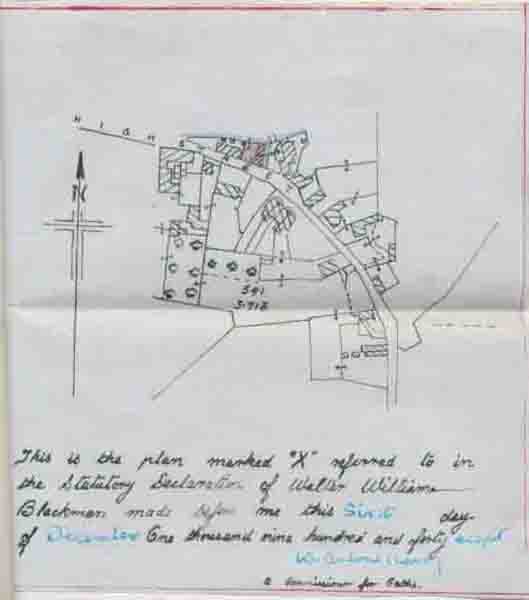 HIGH STREET
N
591
3.718
This is the plan marked "X" referred to in
the Statutory Declaration of Walter William
Blackman made before me this Sixth day
of December One thousand nine hundred and forty eight
a Commissioner for Oaths.